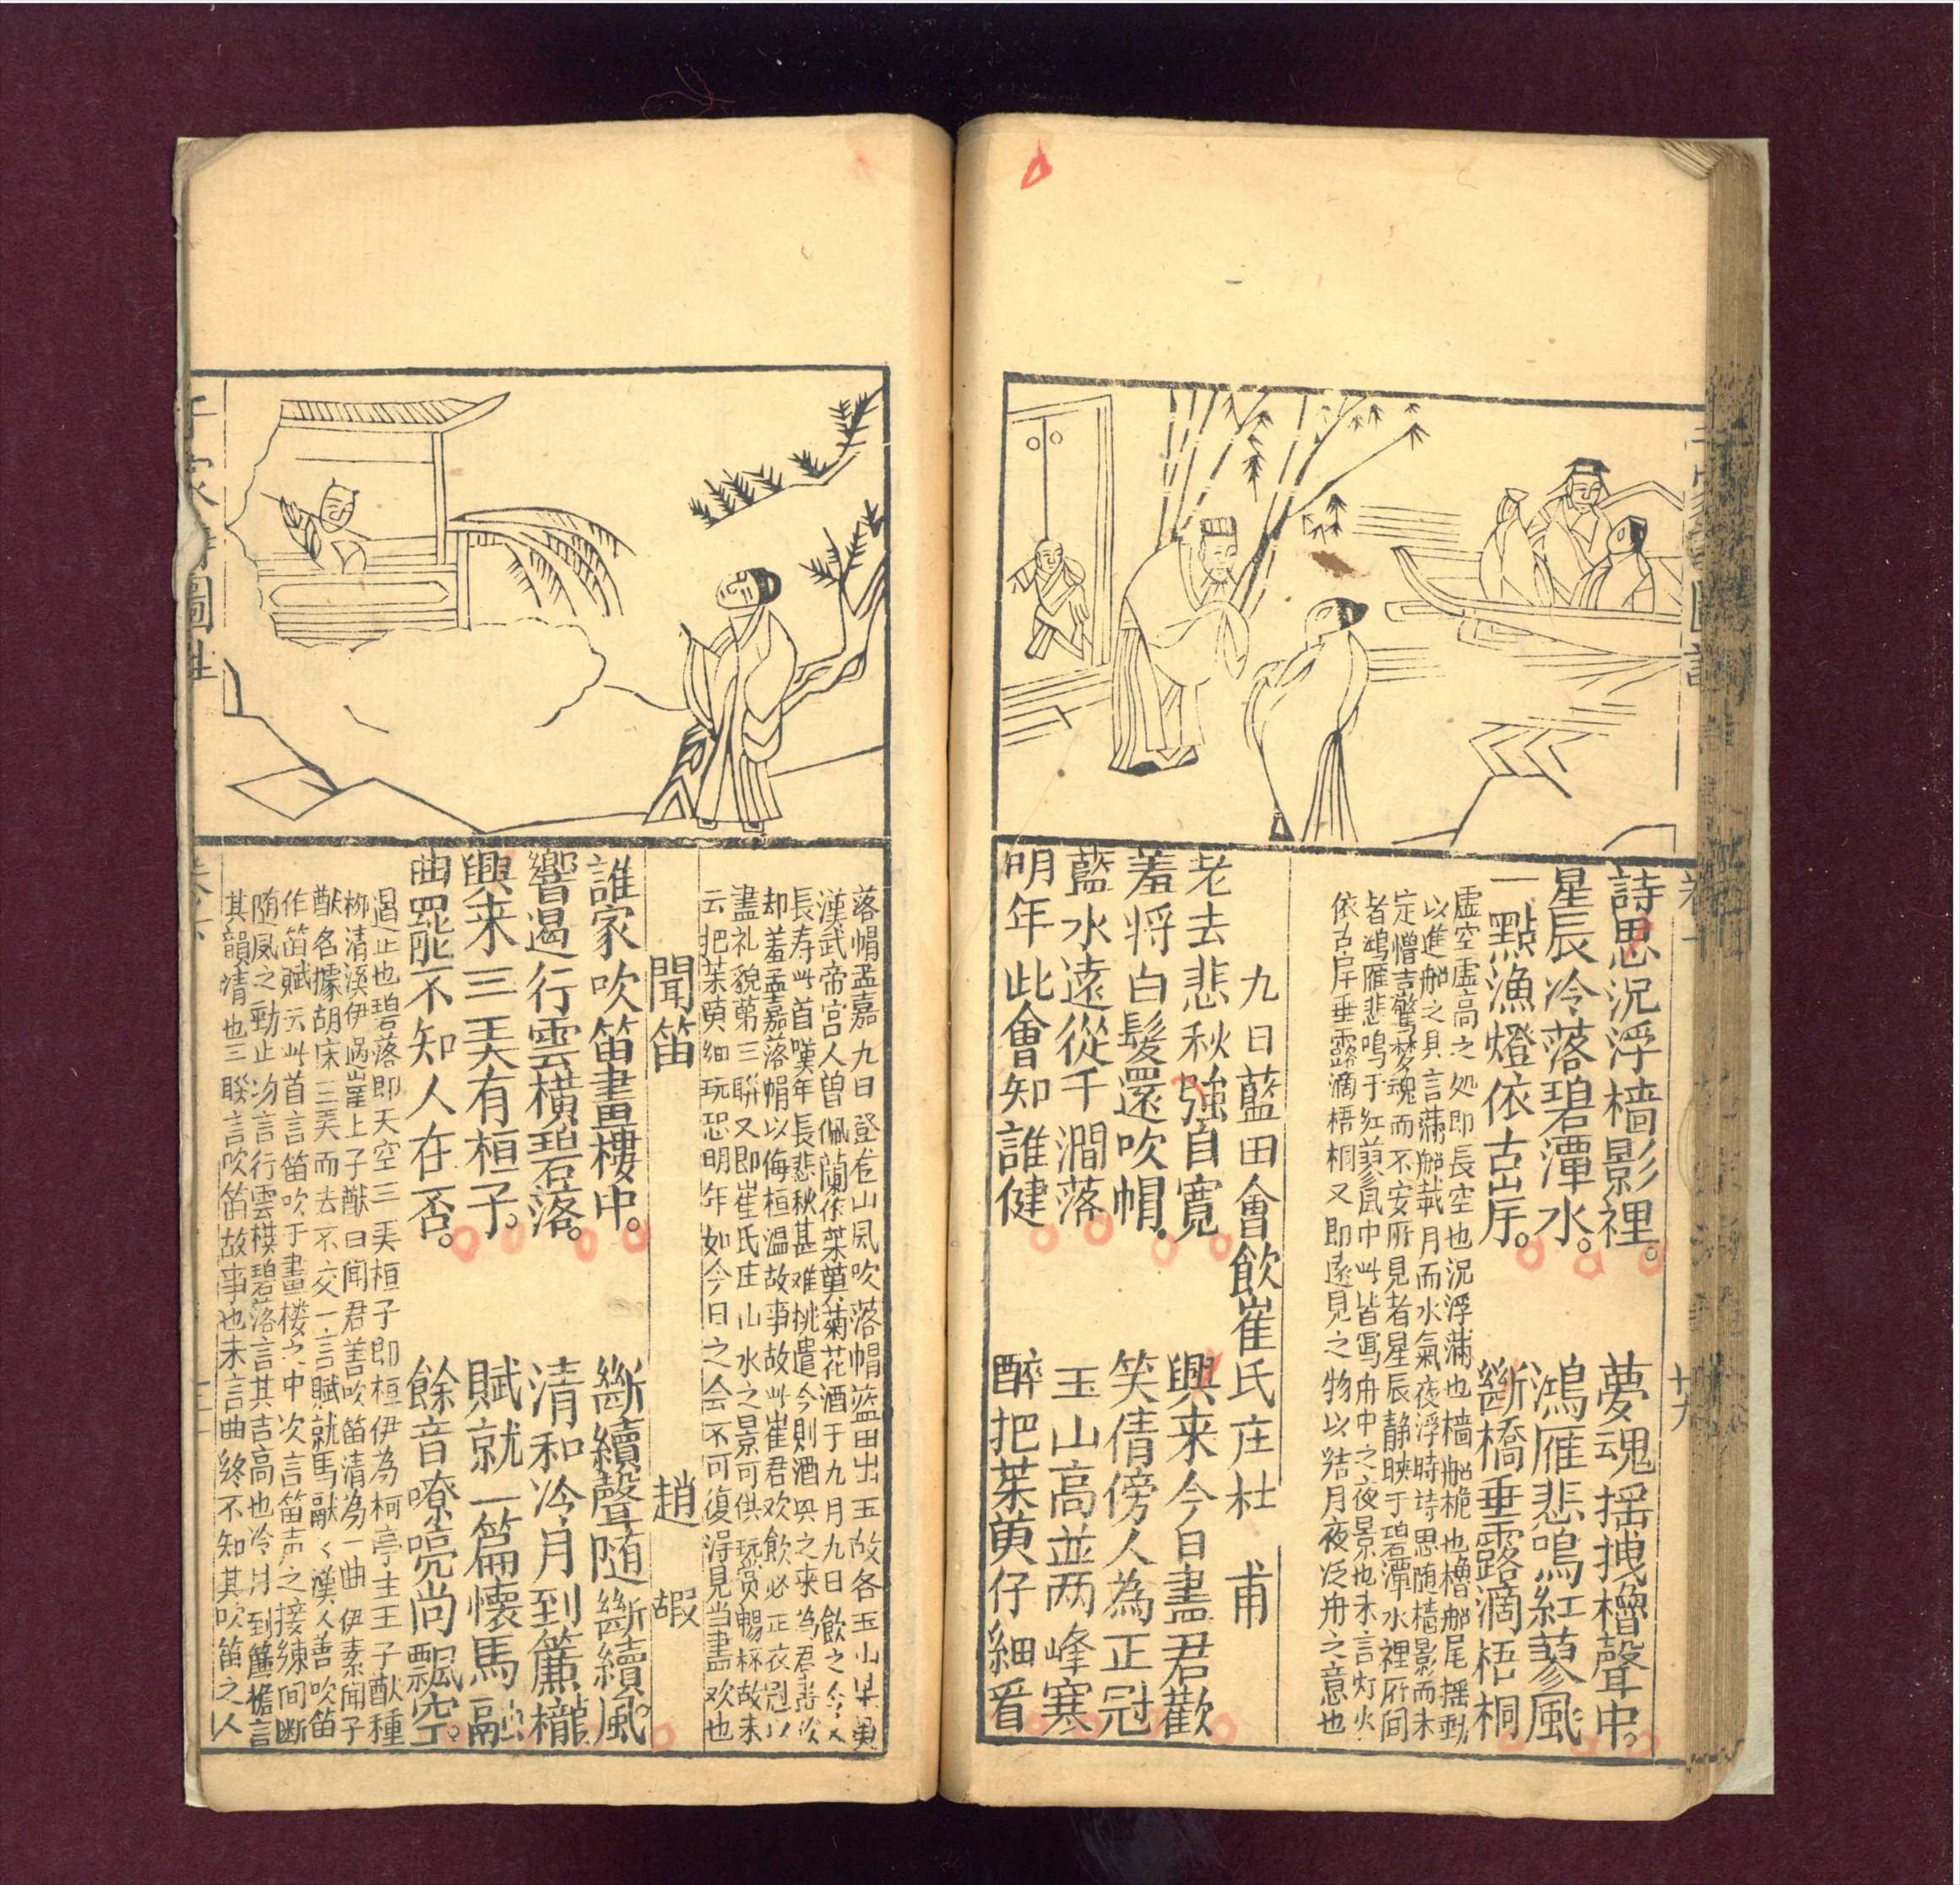 詩思況浮檣影裡。夢魂揺拽櫓聲中。
星辰冷落碧潭水。鴻雁悲鳴紅蓼風
一點漁燈依古岸。斷橋垂露滴梧桐
虛空虛高之処即長空也況浮蕩也檣船桅也櫓船尾揺動
以進船之具言蕩船載月而水氣夜浮時詩思随檣影而未
定憎吉驚夢魂而不安所見者星辰静映于碧潭水裡所间
者鴻雁悲鳴于红蓼風巾此皆寫舟中之夜景也末言灯火
依古岸垂露滴梧桐又即遠見之物以结月夜泛舟之意也
九日藍田會飲崔氏庄 杜甫
老去悲秋強自寬 興来今日盡君歡
羞将白髮還吹帽。 笑倩傍人為正冠
藍水遠從千澗落 玉山高並两峰寒
明年此會知誰健 醉把茱萸仔細看
卷 廿九
落帽孟嘉九日登龙山风吹落帽蓝田出玉故名玉山茱萸
漢武帝宫人曾佩蘭作茱萸菊花酒于九月九日飲之令人
長寿此首嘆年長長悲秋甚难挑遣今則酒興之来為君善飲
却羞孟嘉落帽以侮桓温故事故此崔君欢飲必正衣冠以
盡礼貌第三聯又即崔氏庄山水之景可供玩赏暢杯故末
云把茱萸细玩恐明年如今日之会不可復淂見当盡欢也
聞笛 趙嘏
誰家吹笛畫樓中。 斷續聲随斷續風。
響遏行雲橫碧落。 清和冷月到簾櫳
興来三弄有桓子。 賦就一篇懷馬融
曲罷不知人在否。 餘音嘹喨尚飄空。
遏止也碧落即天空三弄桓子即桓伊為柯亭主王子猷種
柳清溪伊過崖上子猷曰聞君善吹笛清為一曲伊素聞子
猷名據胡床三弄而去不交一言賦就馬融々漢人善吹笛
作笛賦云此首言笛吹于畫楼之中次言笛声之接練间断
随风之勁止为言行雲横碧落言其吉高也冷月到簾櫳言
其韻清也三聨言吹笛故事也末言曲终不知其吹笛之人